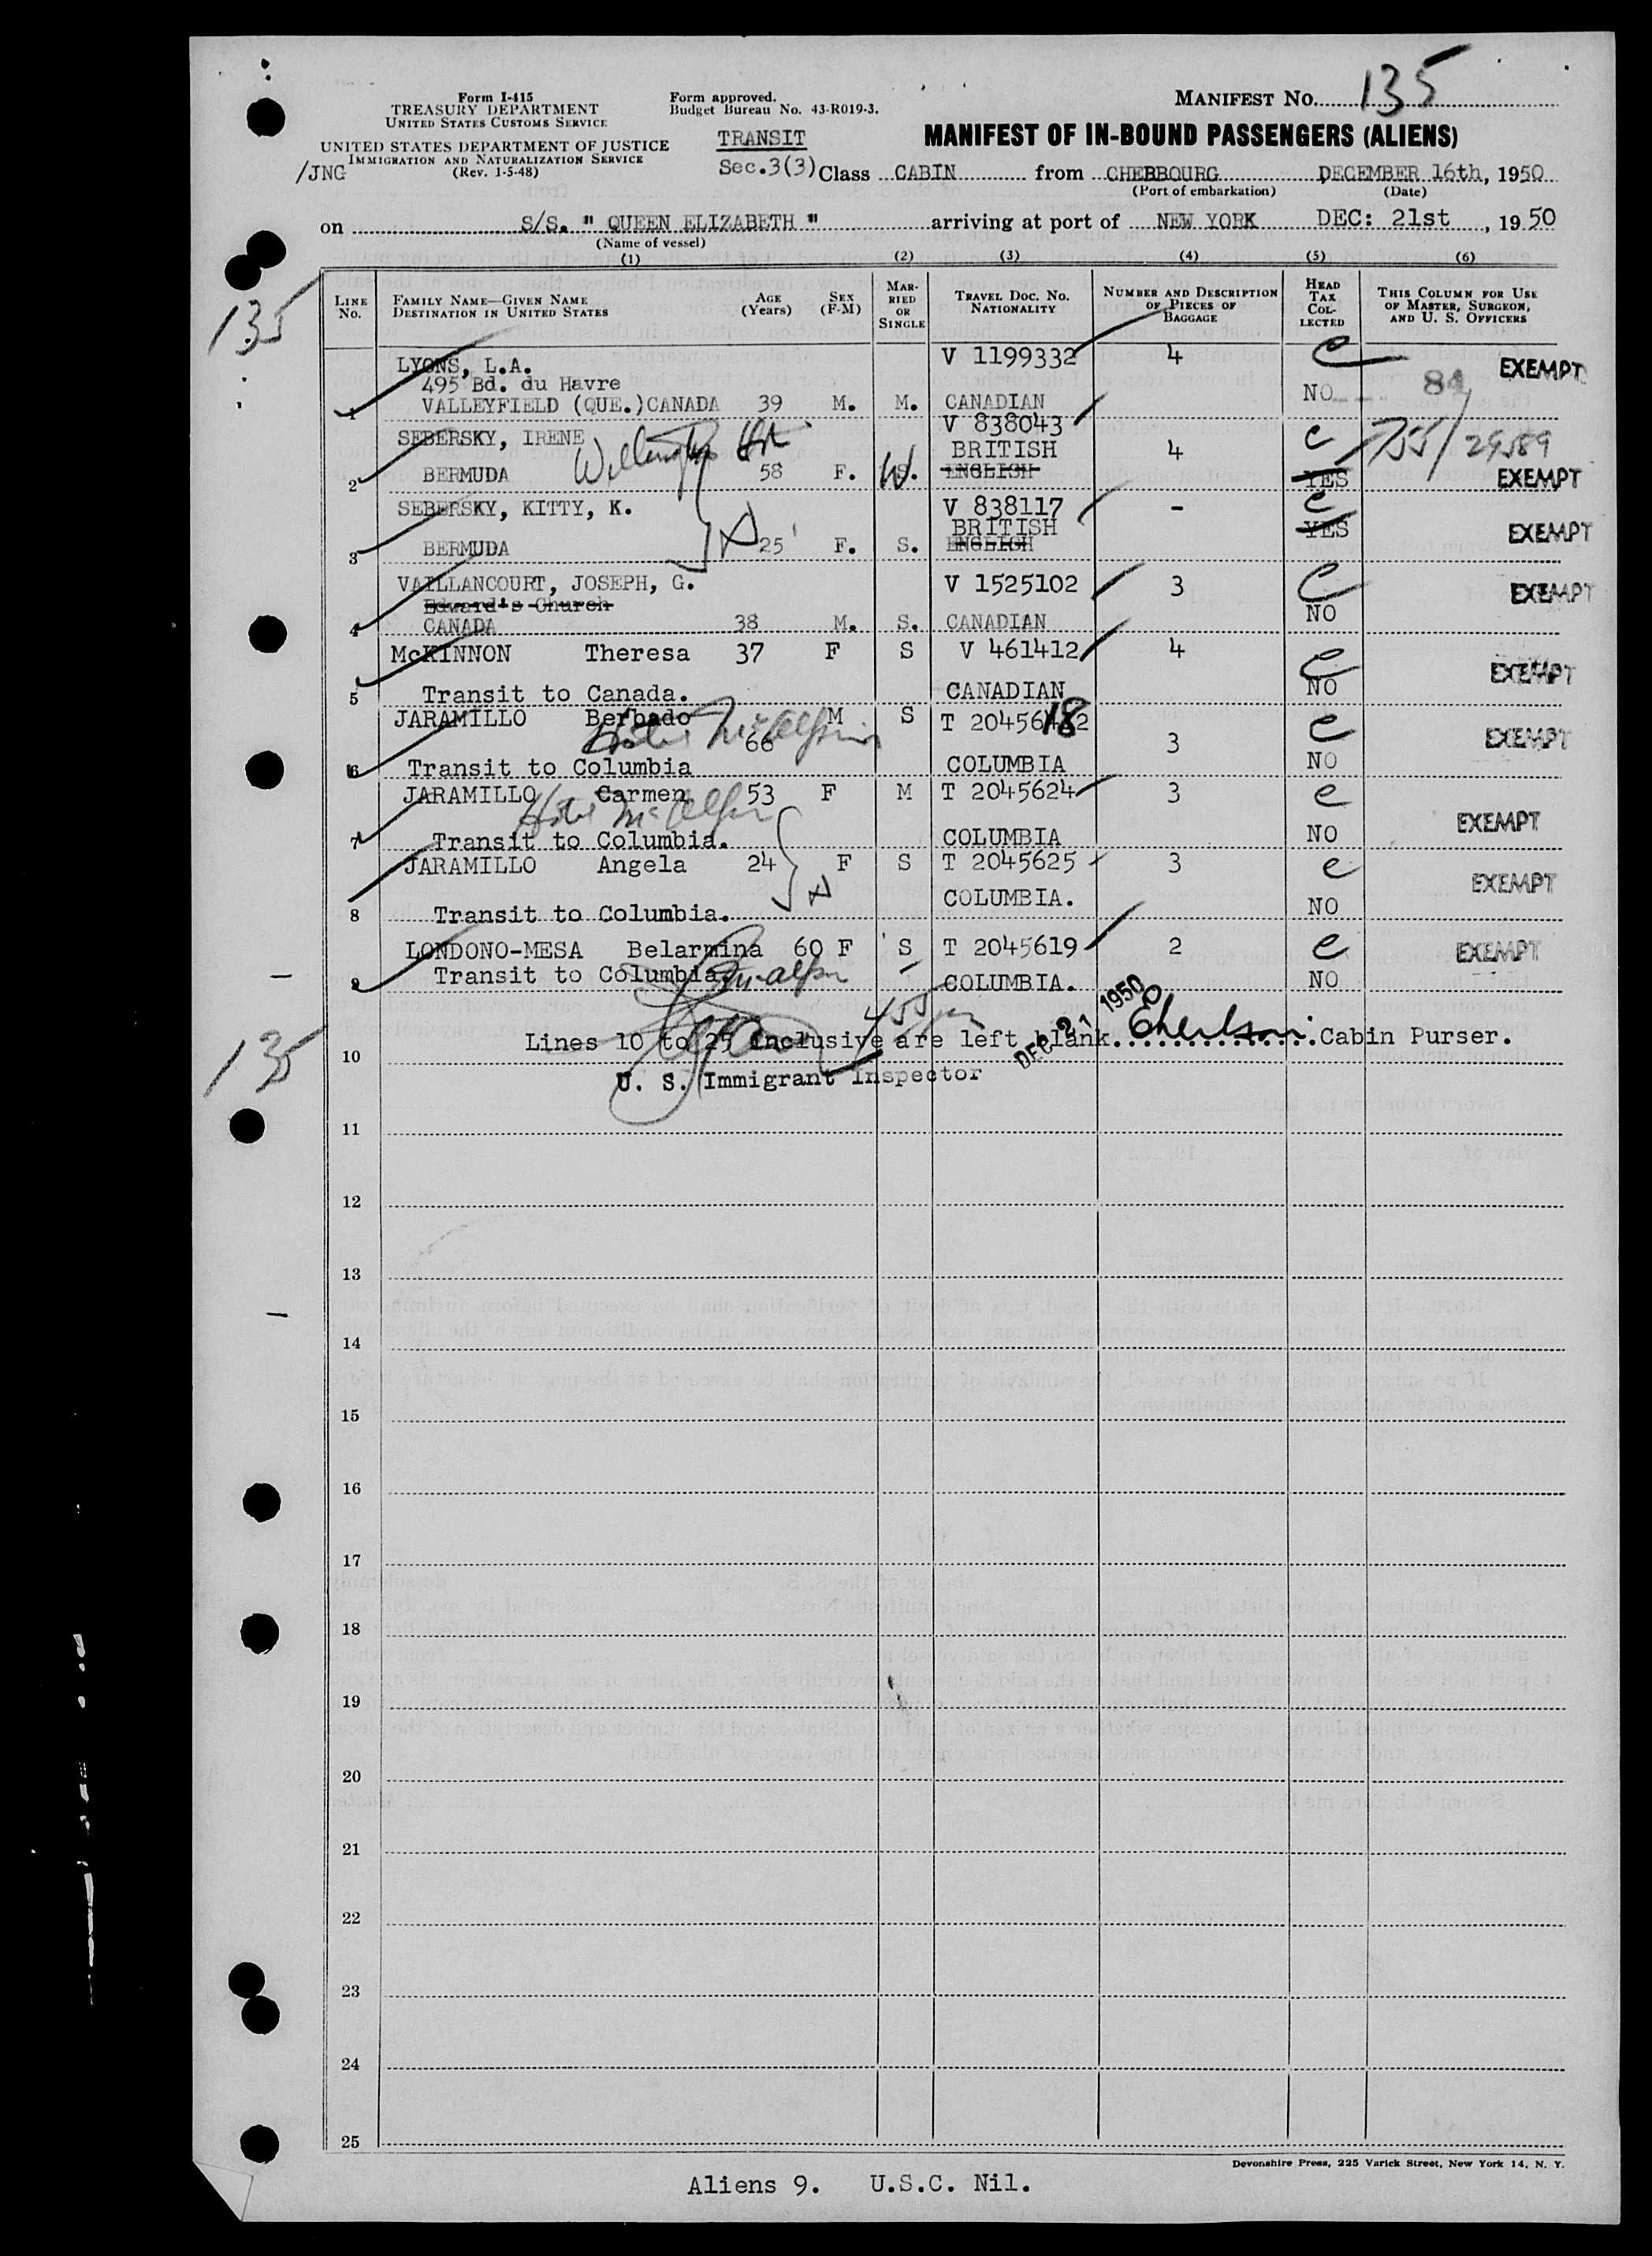 Form I-415
TREASURY DEPARTMENT
UNITED STATES CUSTOMS SERVICE
UNITED STATES DEPARTMENT OF JUSTICE
IMMIGRATION AND NATURALIZATION SERVICE
(Rev. 1-5-48)
/JNG
Form approved.
Budget Bureau No. 43-R019-3.
TRANSIT
Sec.3(3)
MANIFEST No. 135
MANIFEST OF IN-BOUND PASSENGERS (ALIENS)
Class CABIN from CHERBOURG DECEMBER 16th, 1950
(Port of embarkation) (Date)
on S/S. " QUEEN ELIZABETH " arriving at port of NEW YORK DEC: 21st, 1950
(Name of vessel)
(1) (2) (3) (4) (5) (6)
LINE No. FAMILY NAME—GIVEN NAME DESTINATION IN UNITED STATES AGE (Years) SEX (F-M) MARRIED OR SINGLE TRAVEL DOC. NO. NATIONALITY NUMBER AND DESCRIPTION OF PIECES OF BAGGAGE HEAD TAX COLLECTED THIS COLUMN FOR USE OF MASTER, SURGEON, AND U. S. OFFICERS
135
LYONS, L.A. V 1199332 4 EXEMPT
495 Bd. du Havre
1 VALLEYFIELD (QUE.)CANADA 39 M. M. CANADIAN NO 84
SEBERSKY, IRENE V 838043 4 755/29589
BRITISH
2 BERMUDA 58 F. W. S. ENGLISH YES EXEMPT
SEBERSKY, KITTY, K. V 838117 -
BRITISH
3 BERMUDA 25 F. S. ENGLISH YES EXEMPT
VAILLANCOURT, JOSEPH, G. V 1525102 3 EXEMPT
Edward's Church
4 CANADA 38 M. S. CANADIAN NO
McKINNON Theresa 37 F S V 461412 4 EXEMPT
5 Transit to Canada. CANADIAN NO
JARAMILLO Berbado M S T 20456 18
Hotel McAlpin 66 3 EXEMPT
6 Transit to Columbia COLUMBIA NO
JARAMILLO Carmen 53 F M T 2045624 3 EXEMPT
Hotel McAlpin
7 Transit to Columbia. COLUMBIA NO
JARAMILLO Angela 24 F S T 2045625 3 EXEMPT
8 Transit to Columbia. COLUMBIA. NO
LONDONO-MESA Belarmina 60 F S T 2045619 2 EXEMPT
9 Transit to Columbia. McAlpin COLUMBIA. NO
135
DEC 21 1950
10 Lines 10 to 25 inclusive are left blank. Cabin Purser.
U. S. Immigrant Inspector
11
12
13
14
15
16
17
18
19
20
21
22
23
24
25
Devonshire Press, 225 Varick Street, New York 14, N. Y.
Aliens 9. U.S.C. Nil.